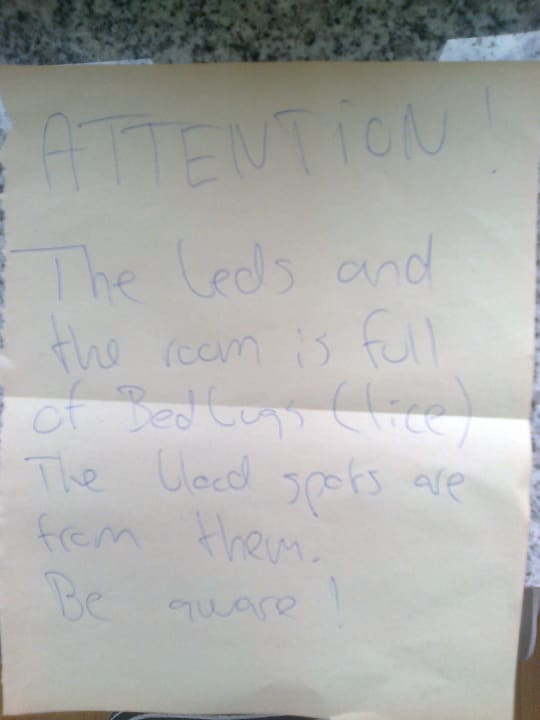 ATTENTiON!
The beds and
the room is full
of Bedbugs (lice)
The blood spots are
from them.
Be aware!